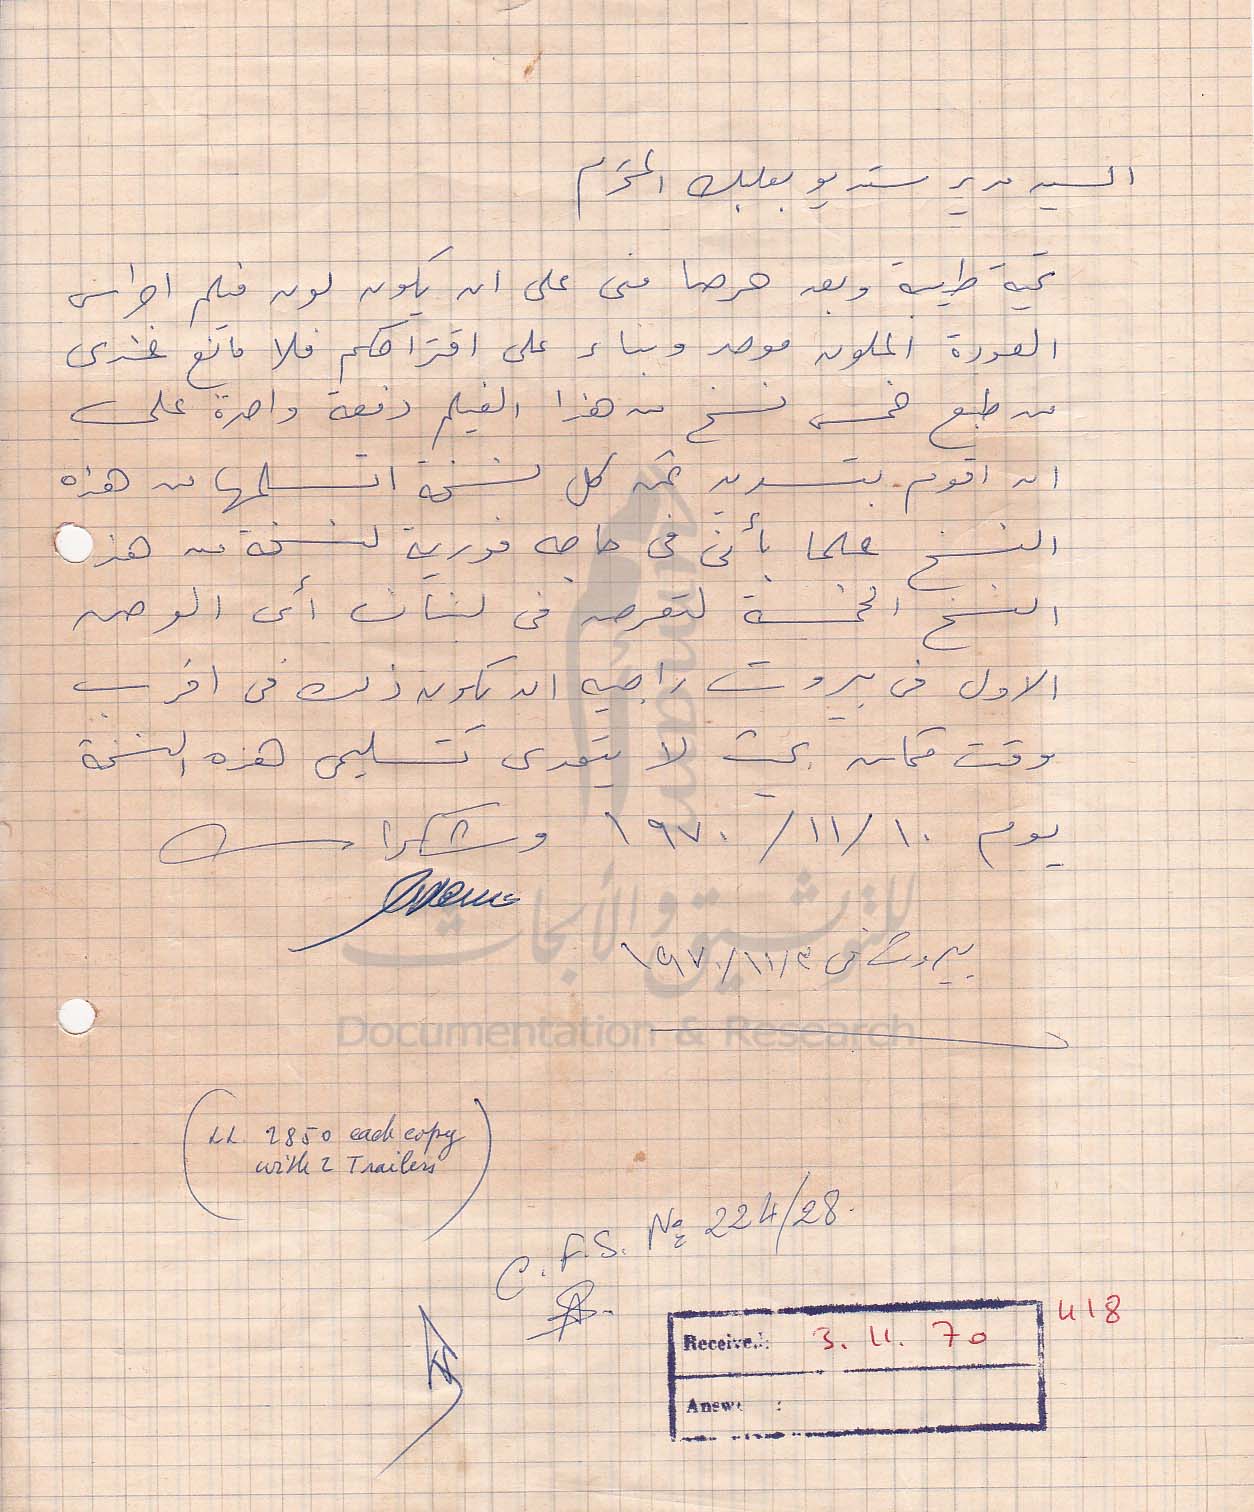 السيد مدير ستديو بعلبك المحترم
تحية طيبة وبعد حرصا منى على ان يكون لون فيلم اجراس
العودة الملون موحد وبناء على اقتراحكم فلا مانع عندى
من طبع خمس نسخ من هذا الفيلم دفعة واحدة على
ان اقوم بتسديد ثمن كل نسخة اتسلمها من هذه
النسخ علما بأنى فى حاجه فورية لنسخة من هذه
النسخ الخمسة لتعرض فى لبنان أى العرض
الاول فى بيروت راجيه ان يكون ذلك فى اقرب
وقت ممكن بحيث لا يتعدى تسليمى هذه النسخة
يوم ١٩٧٠/١١/١٠ وشكرا
بيروت فى ١٩٧٠/١١/٣
للتوثيق والأبحاث
UMAM
Documentation & Research
(LL 2850 each copy
with 2 Trailers)
C.F.S. No 224/28.
418
Received: 3. 11. 70
Answ :